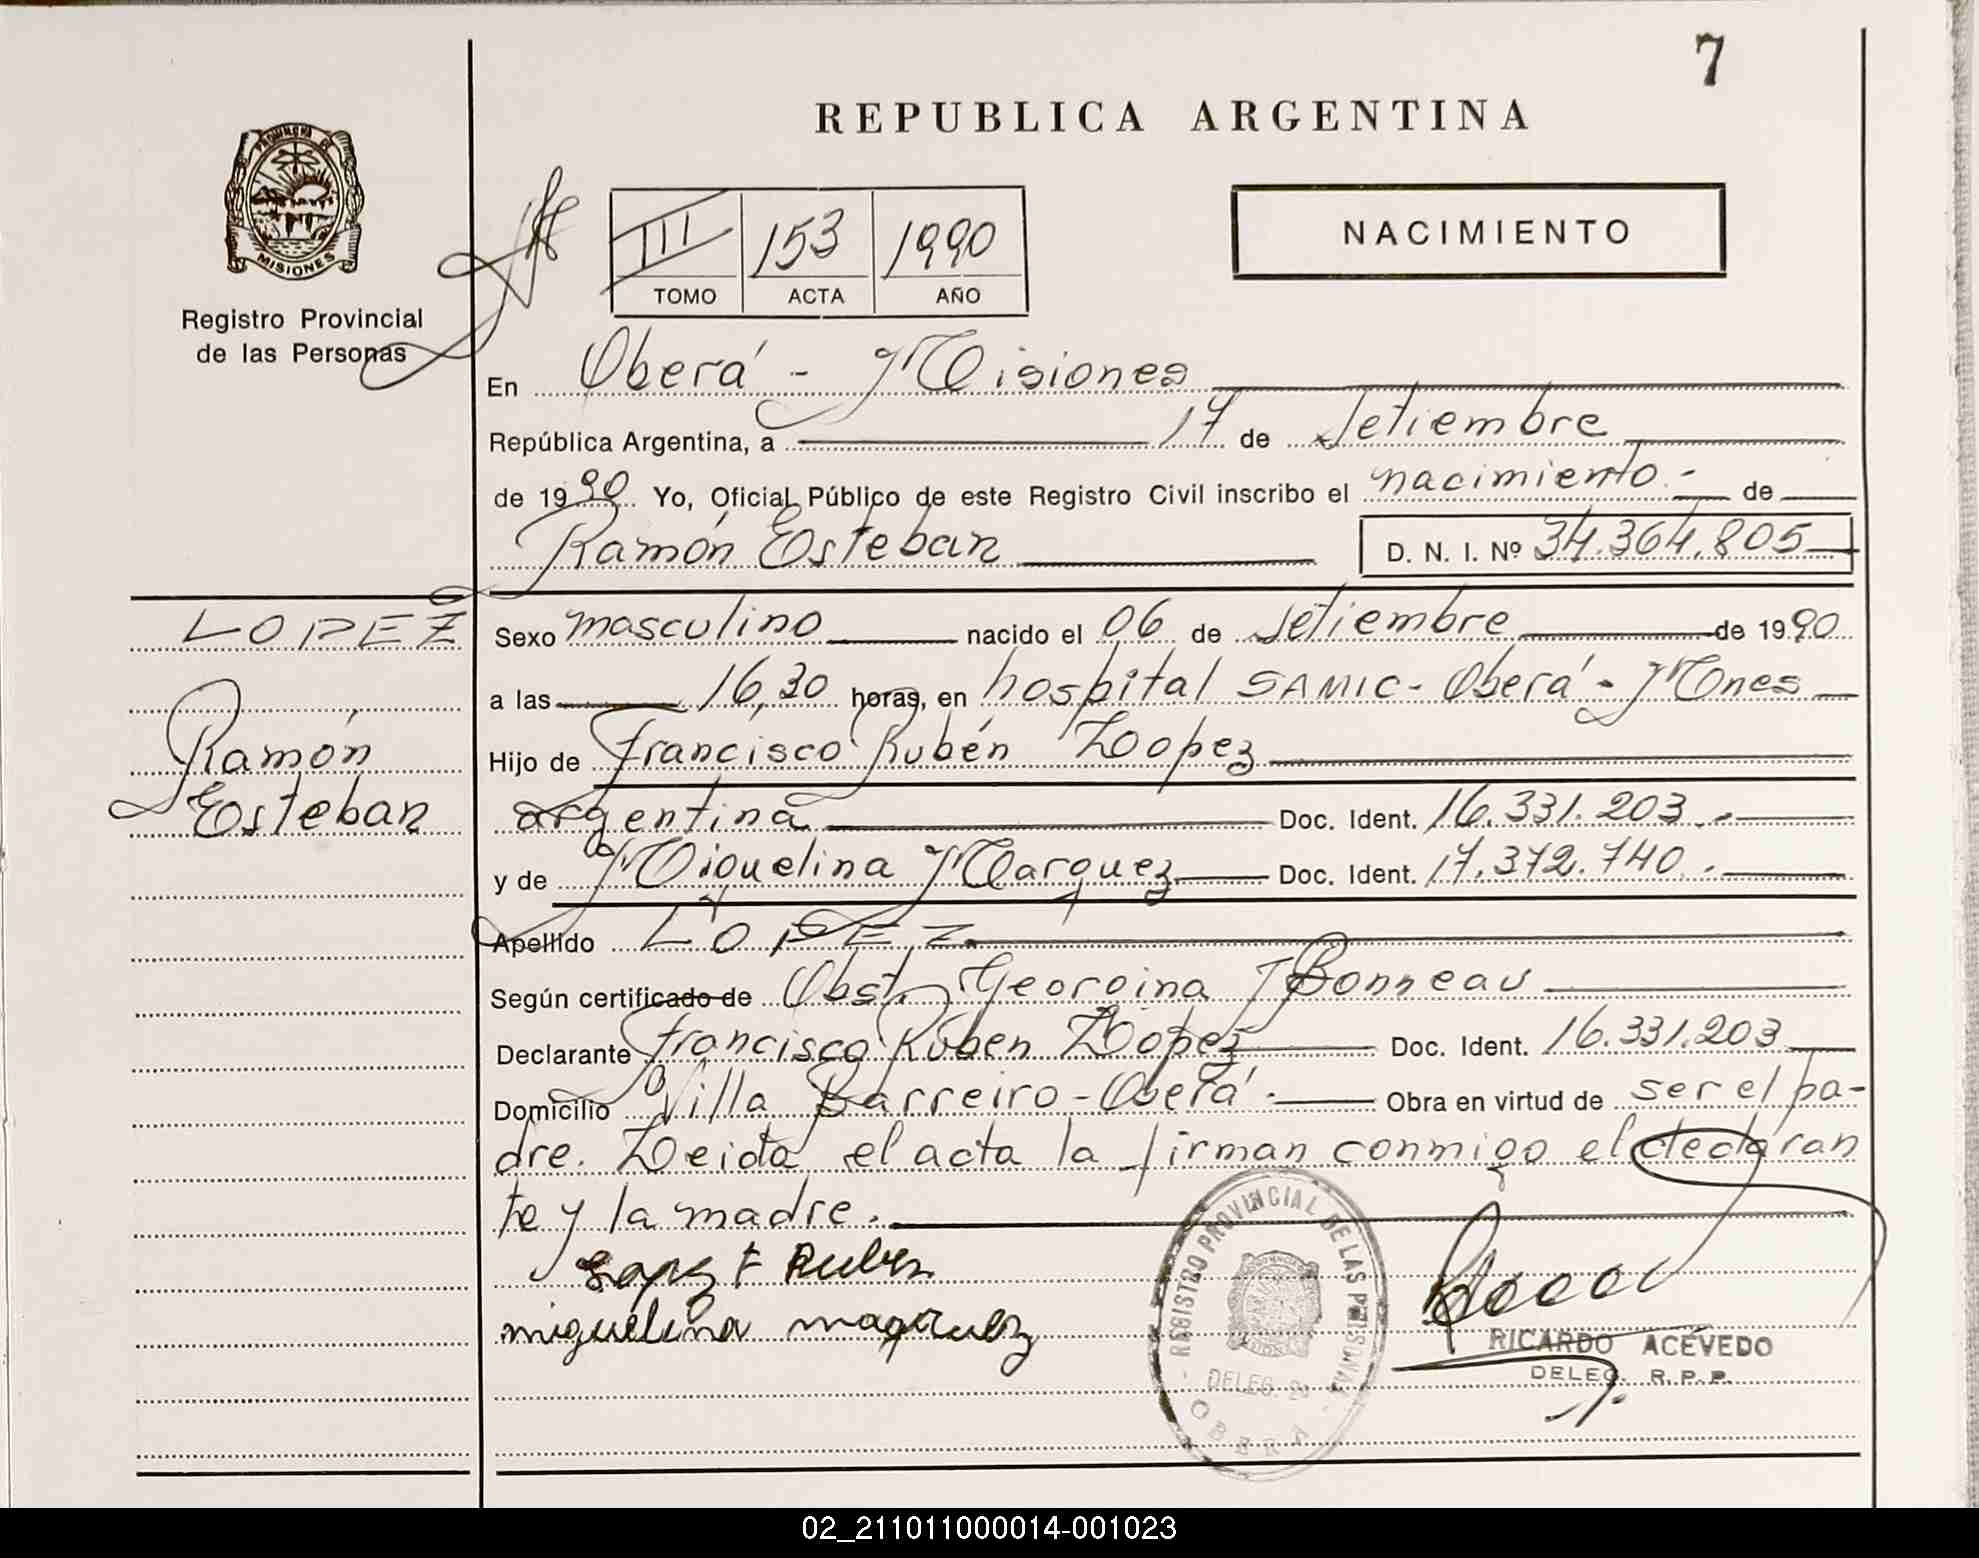 7
REPUBLICA ARGENTINA
PROVINCIA DE
MISIONES
Registro Provincial
de las Personas
III 153 1990
TOMO ACTA AÑO
NACIMIENTO
En Oberá - Misiones
República Argentina, a 17 de Setiembre
de 1990 Yo, Oficial Público de este Registro Civil inscribo el nacimiento.- de
Ramón Esteban D. N. I. Nº 34.364.805
LOPEZ
Ramón
Esteban
Sexo masculino nacido el 06 de Setiembre de 1990
a las 16,30 horas, en hospital SAMIC - Oberá - Mnes
Hijo de Francisco Rubén Lopez
argentina Doc. Ident. 16.331.203.-
y de Miguelina Marquez Doc. Ident. 17.372.740.-
Apellido LOPEZ
Según certificado de Obst. Georgina J Bonneau
Declarante Francisco Ruben Lopez Doc. Ident. 16.331.203
Domicilio Villa Barreiro - Oberá.- Obra en virtud de ser el pa-
dre. Leida el acta la firman conmigo el declaran
te y la madre.
Lopez F Ruben
miguelina maqruez
REGISTRO PROVINCIAL DE LAS PERSONAS
DELEG.
OBERA
RICARDO ACEVEDO
DELEG. R.P.P.
02_211011000014-001023